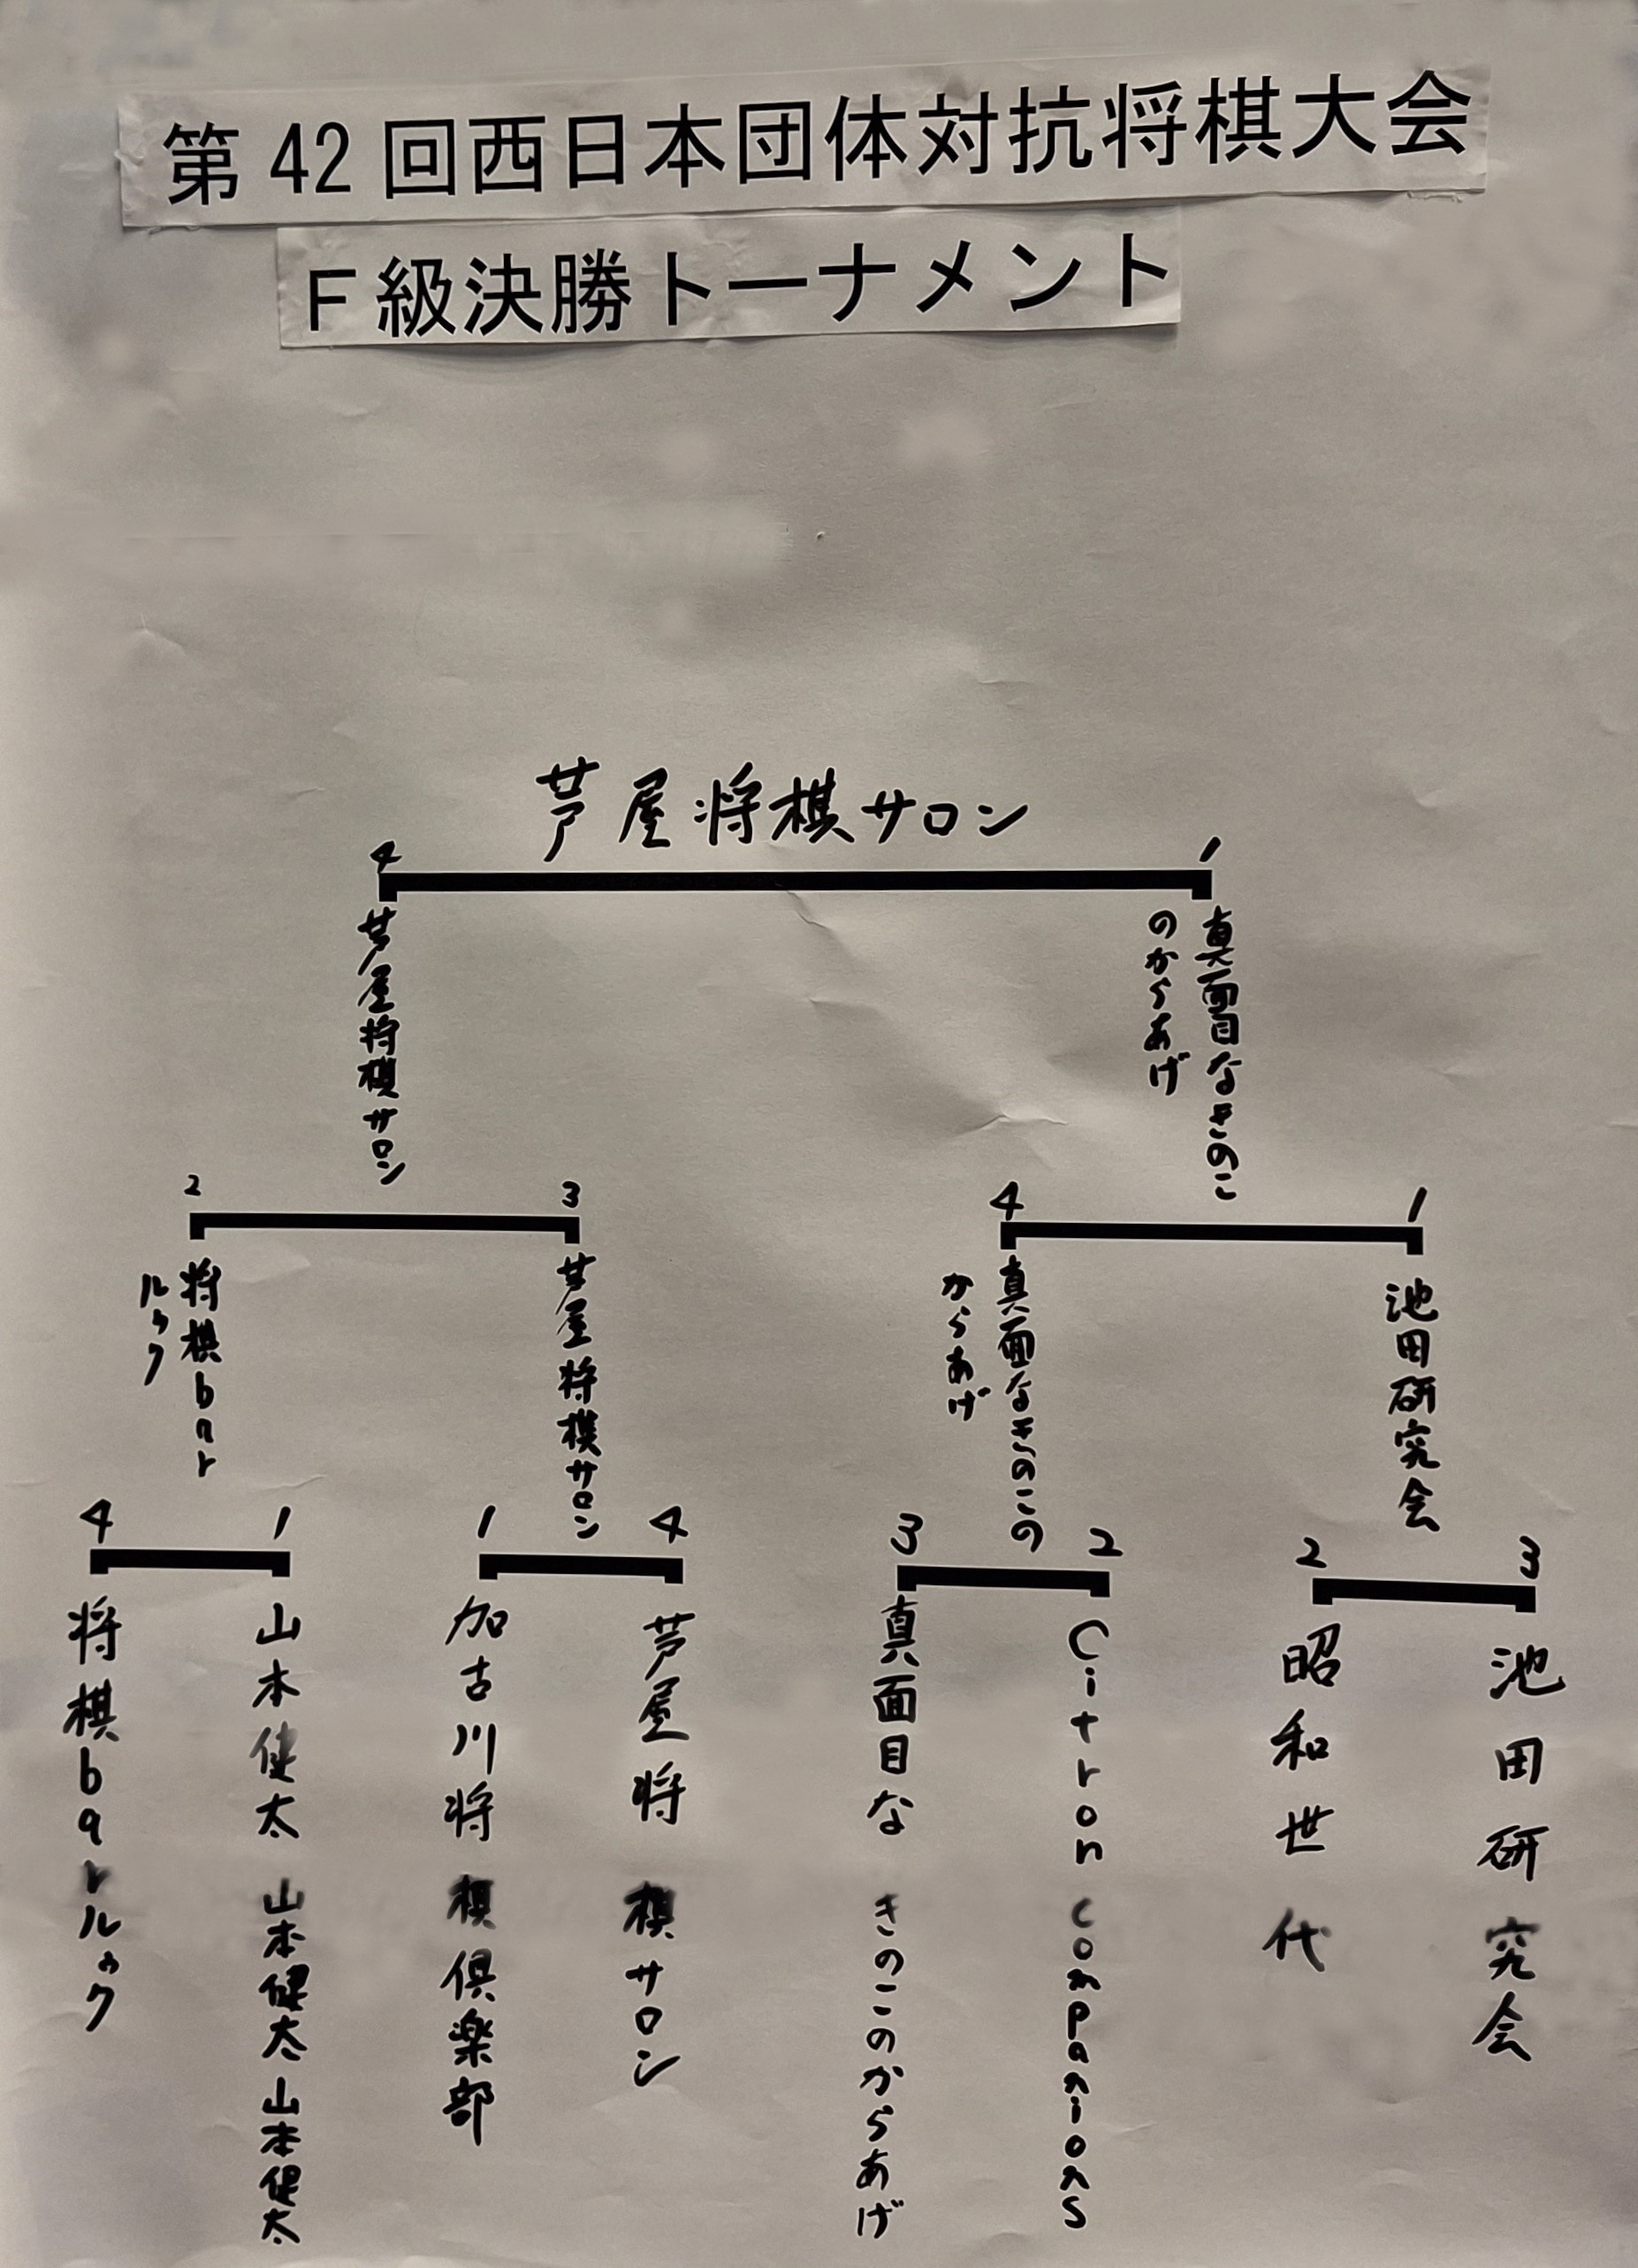 第42回西日本団体対抗将棋大会
F級決勝トーナメント
芦屋将棋サロン
4
1
芦屋将棋サロン
真面目なきのこ
のからあげ
2
3
4
1
将棋bar
ルゥク
芦屋将棋サロン
真面なきのこの
からあげ
池田研究会
4
1
1
4
3
2
2
3
将棋barルゥク
山本健太 山本健太山本健太
加古川将棋倶楽部
芦屋将棋サロン
真面目なきのこのからあげ
Citron companions
昭和世代
池田研究会